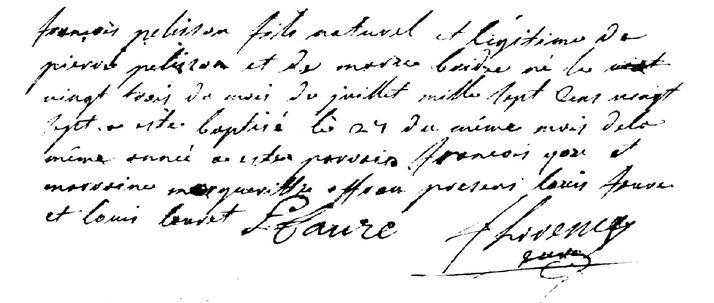 françois pelisson fils naturel et légitime de
pierre pelisson et de marie né le
vingt trois du mois de juillet mille sept cens vingt
sept a este baptisé le 25 du même mois de la
même année a este parrain françois et
marraine margueritte presens louis faure
et louis louvet L faure
curé